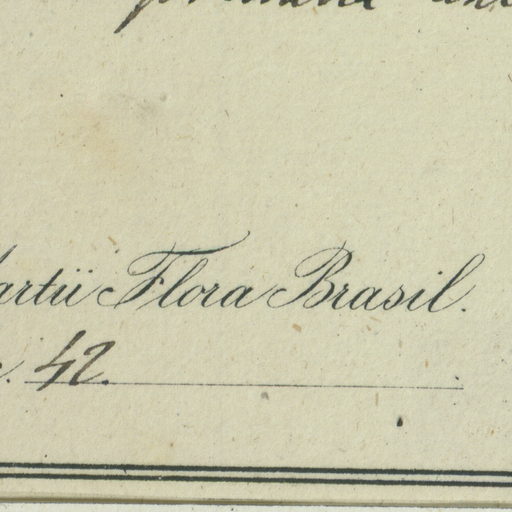 artii Flora Brasil.
42.